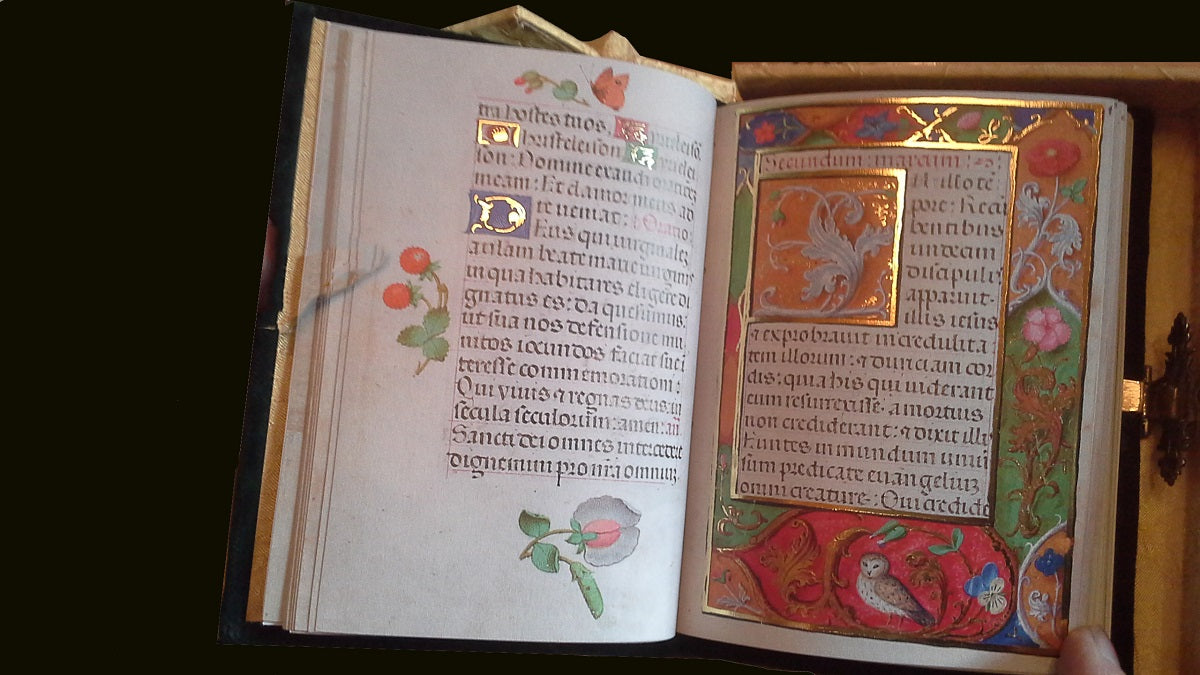 tra hostes tuos. kyrieleiso.
Christeleison kyrielei
son: Domine exaudi
meam: Et clamor meus ad
te veniat: Oratio:
Deus qui virginalez
aulam beate marie virginis
in qua habitares eligere di
gnatus es: da quesumus:
ut sua nos defensione mu
nitos iocundos faciat sue
teresse commemorationi:
Qui vivis & regnas deus in
secula seculorum: amen: an
Sancti dei omnes intercedere
dignemini pro nra omniuz
Secundum marcum:
N illo te
pore: Recu
bentibus
undecim
discipulis
apparuit
illis iesus
& exprobravit incredulita
tem illorum: & duriciam cor
dis: quia his qui viderant
eum resurrexisse a mortuis
non crediderant: & dixit illis
Euntes in mundum univer
sum predicate evangeliuz
omni creature: Qui credide